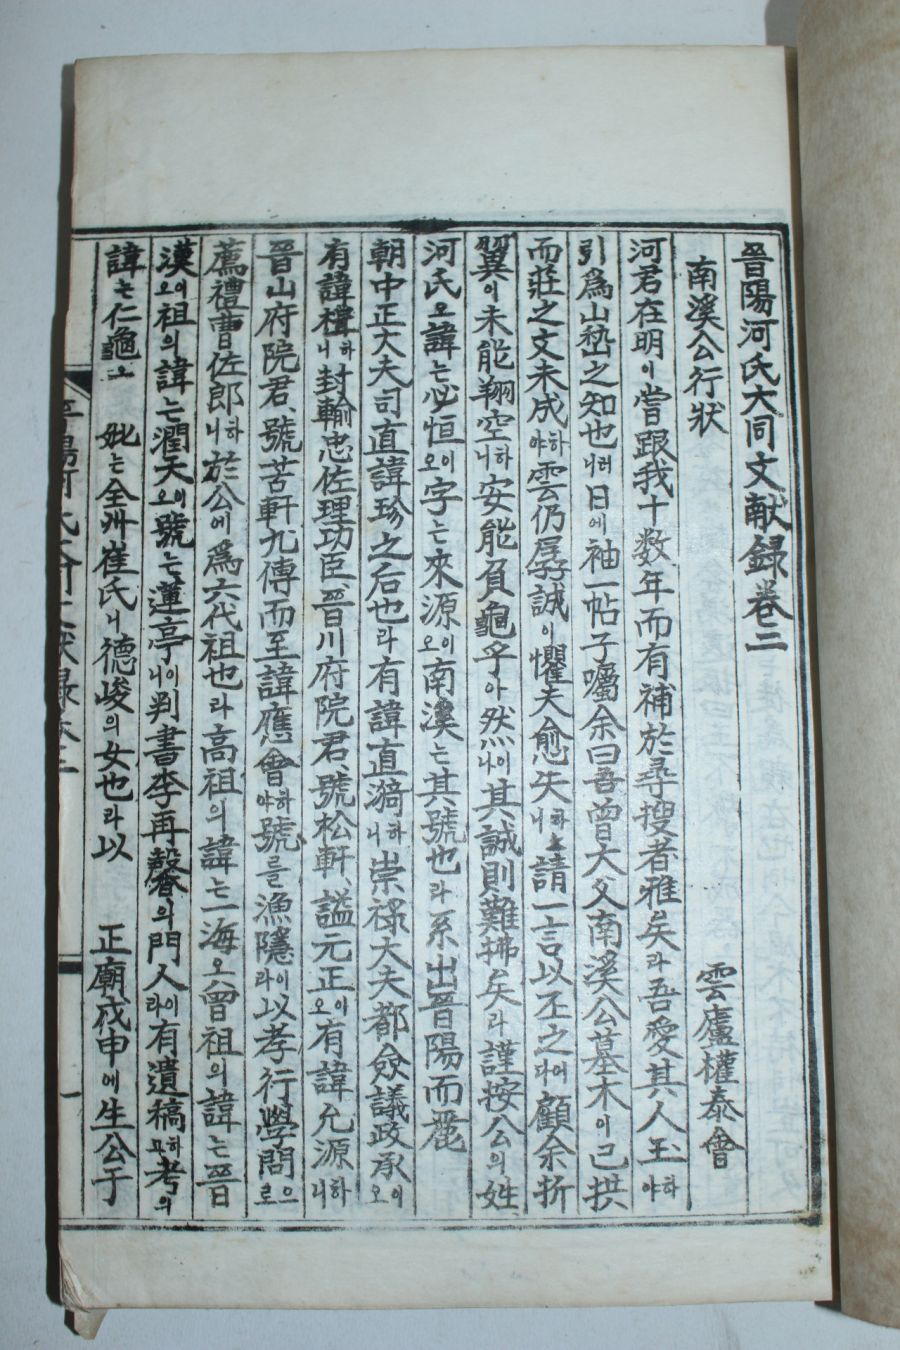 晉陽河氏大同文献録卷二
南溪公行狀 雲廬權泰會
河君在明이嘗跟我十数年而有補於尋搜者雅矣라吾愛其人玉하야
引爲山㘽之知也러니日에袖一帖子囑余曰吾曾大父南溪公墓木이已拱
而莊之文未成하야雲仍孱誠이懼夫愈失하니請一言以丕之어다顧余折
翼이未能翔空하니安能負龜乎아然이나其誠則難拂矣라謹按公의姓
河氏오諱는必恒이오字는來源이오南溪는其號也라系出晉陽而麗
朝中正大夫司直諱珍之后也라有諱直漪하니崇禄大夫都僉議政承이오
有諱禮하니封輸忠佐理功臣晉川府院君號松軒謚元正이오有諱允源하니
晉山府院君號苦軒九傳而至諱應會하야號를漁隱이라以孝行學問으로
薦禮曹佐郎하니於公에爲六代祖也라高祖의諱는一海오曾祖의諱는晉
漢이오祖의諱는潤天이오號는蓮亭이니判書李再馨의門人이라有遺稿하고考의
諱는仁龜오 妣는全州崔氏니德峻의女也라以 正廟戊申에生公于